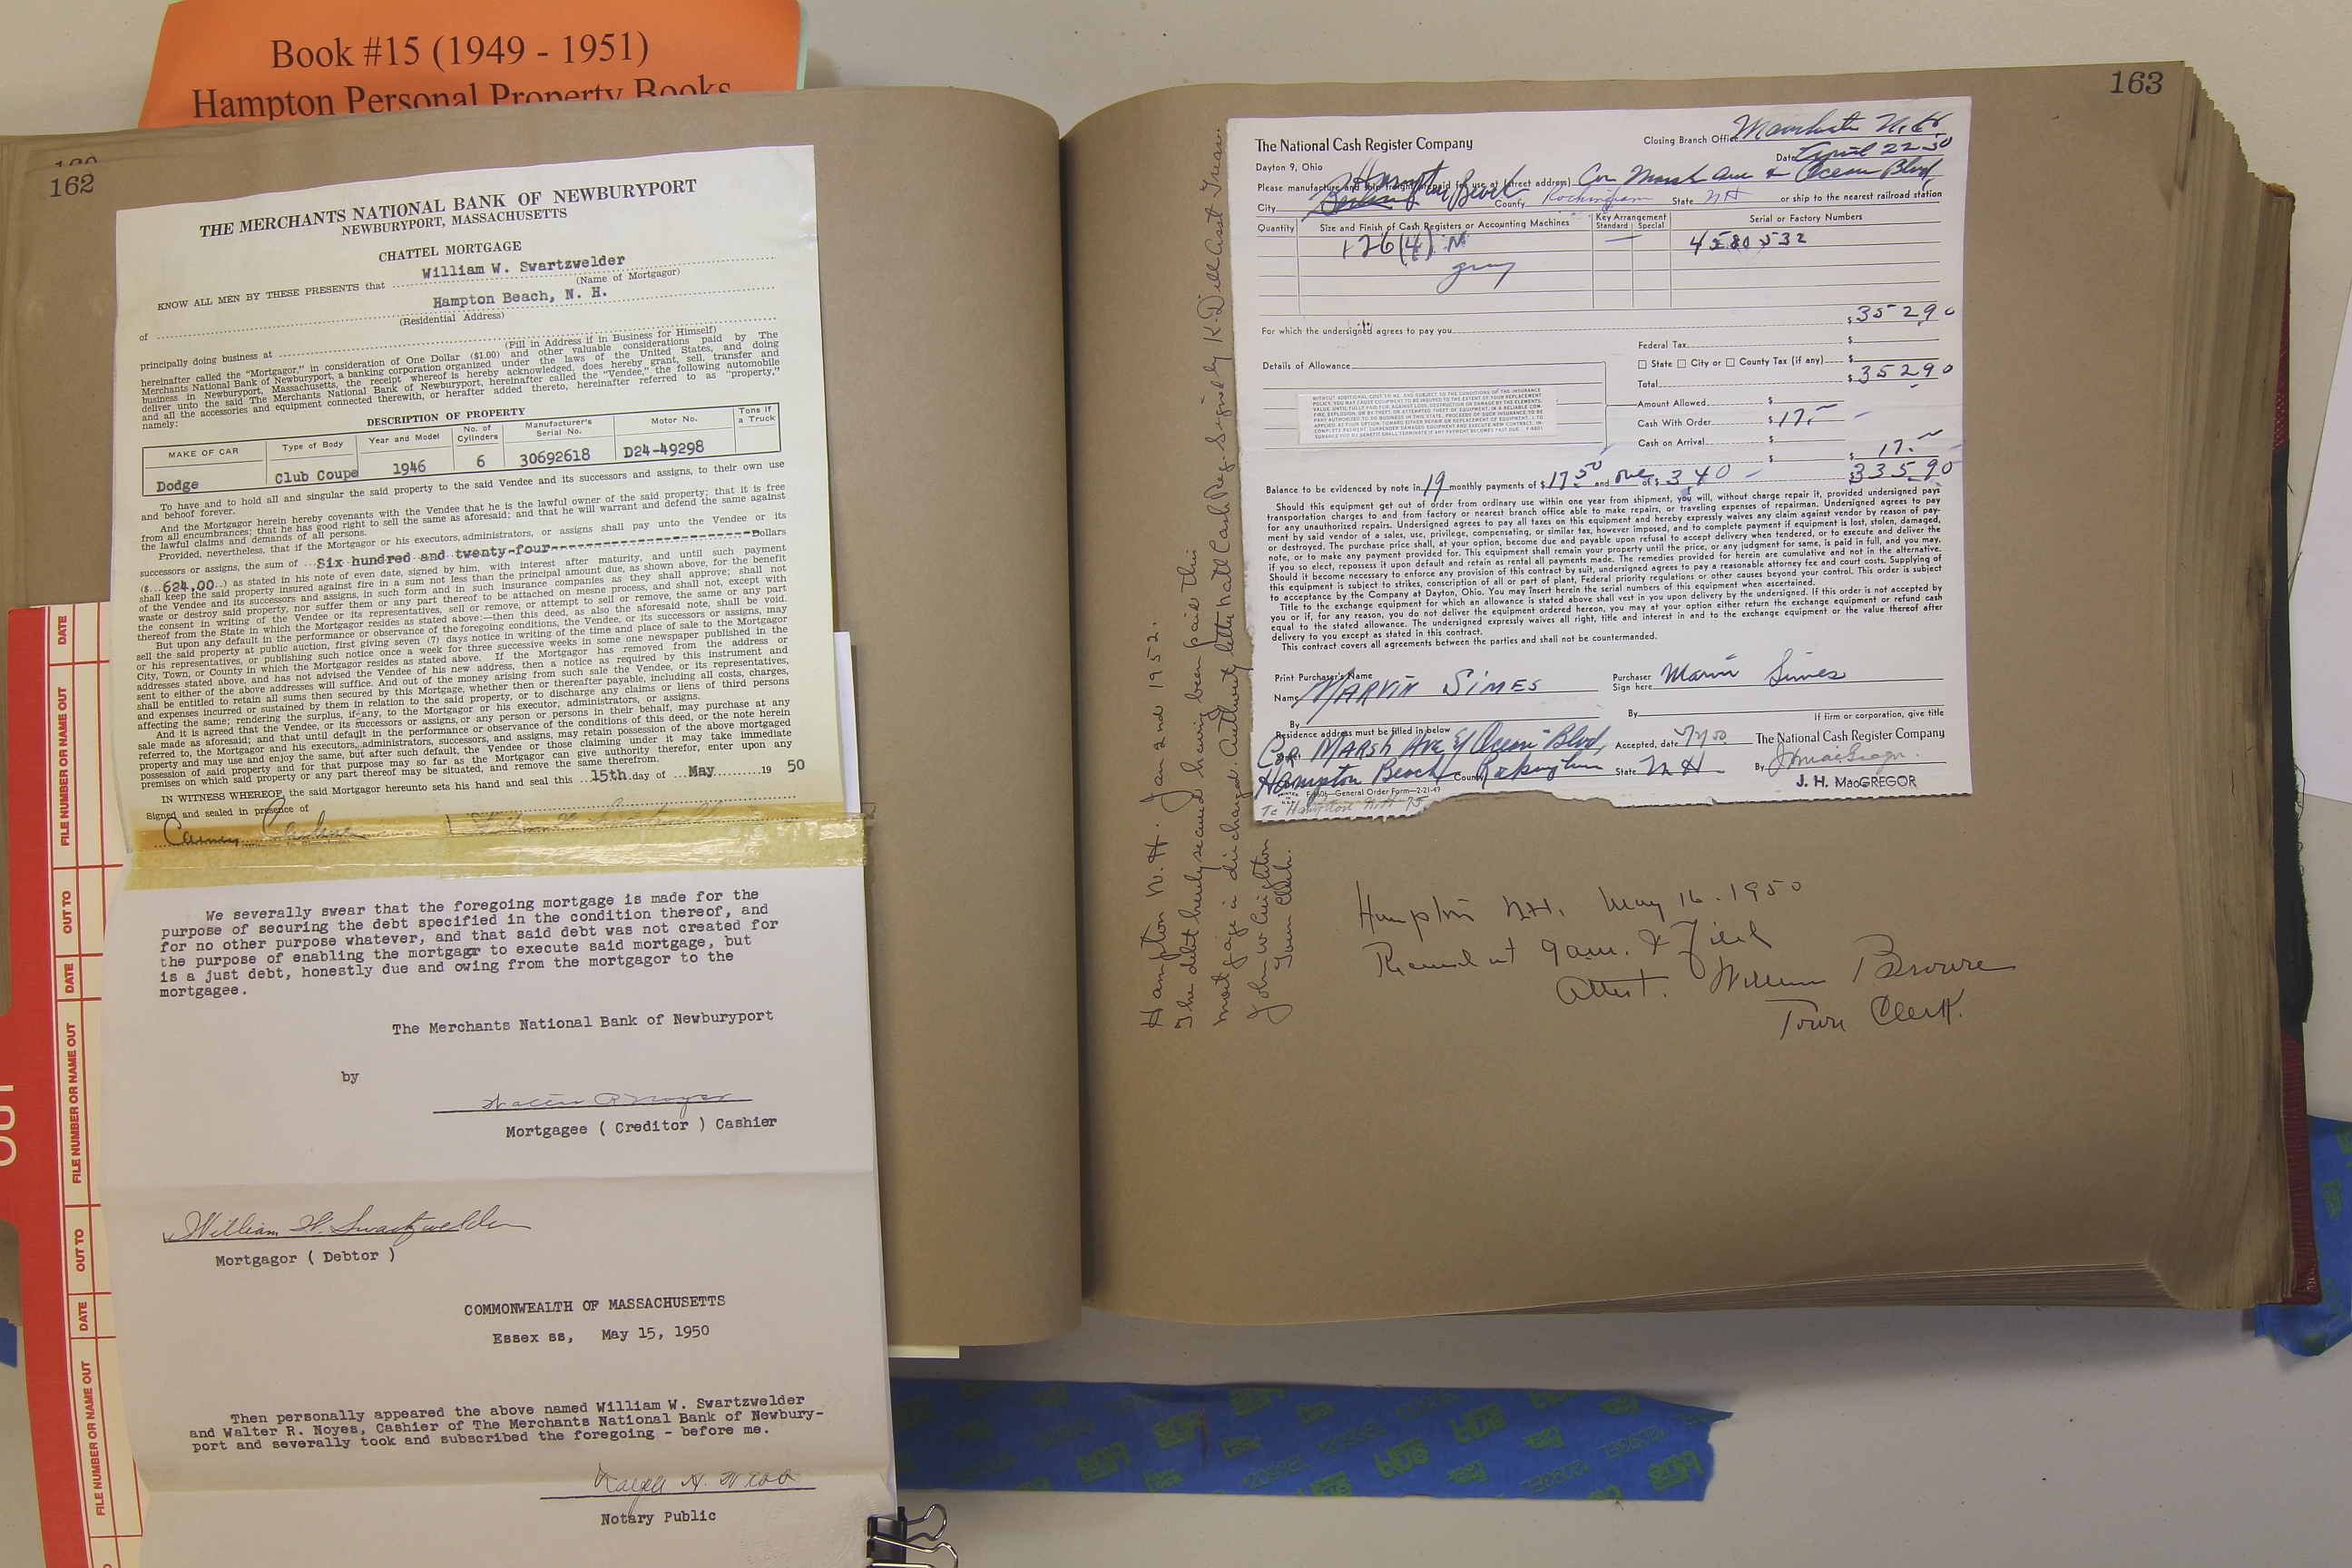 Book #15 (1949 - 1951)
Hampton Personal Property Books
162
THE MERCHANTS NATIONAL BANK OF NEWBURYPORT
NEWBURYPORT, MASSACHUSETTS
CHATTEL MORTGAGE
KNOW ALL MEN BY THESE PRESENTS that William W. Swartzwelder
(Name of Mortgagor)
of Hampton Beach, N. H.
(Residential Address)
principally doing business at
(Fill in Address if in Business for Himself)
hereinafter called the "Mortgagor," in consideration of One Dollar ($1.00) and other valuable considerations paid by The
Merchants National Bank of Newburyport, a banking corporation organized under the laws of the United States, and doing
business in Newburyport, Massachusetts, the receipt whereof is hereby acknowledged, does hereby grant, sell, transfer and
deliver unto the said The Merchants National Bank of Newburyport, hereinafter called the "Vendee," the following automobile
and all the accessories and equipment connected therewith, or herafter added thereto, hereinafter referred to as "property,"
namely:
DESCRIPTION OF PROPERTY
MAKE OF CAR Type of Body Year and Model No. of Cylinders Manufacturer's Serial No. Motor No. Tons if a Truck
Dodge Club Coupe 1946 6 30692618 D24-49298
To have and to hold all and singular the said property to the said Vendee and its successors and assigns, to their own use
and behoof forever.
And the Mortgagor herein hereby covenants with the Vendee that he is the lawful owner of the said property; that it is free
from all encumbrances; that he has good right to sell the same as aforesaid; and that he will warrant and defend the same against
the lawful claims and demands of all persons.
Provided, nevertheless, that if the Mortgagor or his executors, administrators, or assigns shall pay unto the Vendee or its
successors or assigns, the sum of Six hundred and twenty-four--------------------Dollars
($ 624.00 ) as stated in his note of even date, signed by him, with interest after maturity, and until such payment
shall keep the said property insured against fire in a sum not less than the principal amount due, as shown above, for the benefit
of the Vendee and its successors and assigns, in such form and in such insurance companies as they shall approve; shall not
waste or destroy said property, nor suffer them or any part thereof to be attached on mesne process, and shall not, except with
the consent in writing of the Vendee or its representatives, sell or remove, or attempt to sell or remove, the same or any part
thereof from the State in which the Mortgagor resides as stated above:—then this deed, as also the aforesaid note, shall be void.
But upon any default in the performance or observance of the foregoing conditions, the Vendee, or its successors or assigns, may
sell the said property at public auction, first giving seven (7) days notice in writing of the time and place of sale to the Mortgagor
or his representatives, or publishing such notice once a week for three successive weeks in some one newspaper published in the
City, Town, or County in which the Mortgagor resides as stated above. If the Mortgagor has removed from the address or
addresses stated above, and has not advised the Vendee of his new address, then a notice as required by this instrument and
sent to either of the above addresses will suffice. And out of the money arising from such sale the Vendee, or its representatives,
shall be entitled to retain all sums then secured by this Mortgage, whether then or thereafter payable, including all costs, charges,
and expenses incurred or sustained by them in relation to the said property, or to discharge any claims or liens of third persons
affecting the same; rendering the surplus, if any, to the Mortgagor or his executor, administrators, or assigns.
And it is agreed that the Vendee, or its successors or assigns, or any person or persons in their behalf, may purchase at any
sale made as aforesaid; and that until default in the performance or observance of the conditions of this deed, or the note herein
referred to, the Mortgagor and his executors, administrators, successors, and assigns, may retain possession of the above mortgaged
property and may use and enjoy the same, but after such default, the Vendee or those claiming under it may take immediate
possession of said property and for that purpose may so far as the Mortgagor can give authority therefor, enter upon any
premises on which said property or any part thereof may be situated, and remove the same therefrom.
IN WITNESS WHEREOF, the said Mortgagor hereunto sets his hand and seal this 15th day of May 19 50
Signed and sealed in presence of
We severally swear that the foregoing mortgage is made for the
purpose of securing the debt specified in the condition thereof, and
for no other purpose whatever, and that said debt was not created for
the purpose of enabling the mortgagr to execute said mortgage, but
is a just debt, honestly due and owing from the mortgagor to the
mortgagee.
The Merchants National Bank of Newburyport
by
Walter R Noyes
Mortgagee ( Creditor ) Cashier
William W. Swartzwelder
Mortgagor ( Debtor )
COMMONWEALTH OF MASSACHUSETTS
Essex ss, May 15, 1950
Then personally appeared the above named William W. Swartzwelder
and Walter R. Noyes, Cashier of The Merchants National Bank of Newbury-
port and severally took and subscribed the foregoing - before me.
Notary Public
FILE NUMBER OR NAME OUT DATE OUT TO FILE NUMBER OR NAME OUT DATE OUT TO FILE NUMBER OR NAME OUT DATE
OUT
163
The National Cash Register Company
Dayton 9, Ohio
Closing Branch Office Manchester N.H.
Date April 22-50
Please manufacture and ship freight prepaid for use at (street address) Cor Marsh Ave & Ocean Blvd,
City Hampton Beach County Rockingham State NH or ship to the nearest railroad station
Quantity Size and Finish of Cash Registers or Accounting Machines Key Arrangement Standard Special Serial or Factory Numbers
126(4) M 4580532
gray
For which the undersigned agrees to pay you $ 352.90
Federal Tax $
Details of Allowance
State City or County Tax (if any) $
Total $ 352.90
Amount Allowed $
Cash With Order $ 17.-
Cash on Arrival $
$ 17.-
WITHOUT ADDITIONAL COST TO ME, AND SUBJECT TO THE CONDITIONS OF THE INSURANCE
POLICY, YOU MAY CAUSE EQUIPMENT TO BE INSURED TO THE EXTENT OF YOUR REPLACEMENT
VALUE, UNTIL FULLY PAID FOR, AGAINST LOSS, DESTRUCTION OR DAMAGE BY THE ELEMENTS,
FIRE, EXPLOSION, OR BY THEFT OR ATTEMPTED THEFT OF EQUIPMENT, IN A RELIABLE COM-
PANY AUTHORIZED TO DO BUSINESS IN THIS STATE. PROCEEDS OF SUCH INSURANCE TO BE
APPLIED, AT YOUR OPTION, TOWARD EITHER REPAIR OR REPLACEMENT OF EQUIPMENT. I, TO
Balance to be evidenced by note in 19 monthly payments of $ 17.50 and one of $ 3.40 $ 335.90
Should this equipment get out of order from ordinary use within one year from shipment, you will, without charge repair it, provided undersigned pays
transportation charges to and from factory or nearest branch office able to make repairs, or traveling expenses of repairman. Undersigned agrees to pay
for any unauthorized repairs. Undersigned agrees to pay all taxes on this equipment and hereby expressly waives any claim against vendor by reason of pay-
ment by said vendor of a sales, use, privilege, compensating, or similar tax, however imposed, and to complete payment if equipment is lost, stolen, damaged,
or destroyed. The purchase price shall, at your option, become due and payable upon refusal to accept delivery when tendered, or to execute and deliver the
note, or to make any payment provided for. This equipment shall remain your property until the price, or any judgment for same, is paid in full, and you may,
if you so elect, repossess it upon default and retain as rental all payments made. The remedies provided for herein are cumulative and not in the alternative.
Should it become necessary to enforce any provision of this contract by suit, undersigned agrees to pay a reasonable attorney fee and court costs. Supplying of
this equipment is subject to strikes, conscription of all or part of plant, Federal priority regulations or other causes beyond your control. This order is subject
to acceptance by the Company at Dayton, Ohio. You may insert herein the serial numbers of this equipment when ascertained.
Title to the exchange equipment for which an allowance is stated above shall vest in you upon delivery by the undersigned. If this order is not accepted by
you or if, for any reason, you do not deliver the equipment ordered hereon, you may at your option either return the exchange equipment or refund cash
equal to the stated allowance. The undersigned expressly waives all right, title and interest in and to the exchange equipment or the value thereof after
delivery to you except as stated in this contract.
This contract covers all agreements between the parties and shall not be countermanded.
Print Purchaser's Name
Name MARVIN SIMES
Purchaser Sign here Marvin Simes
By
By
If firm or corporation, give title
Residence address must be filled in below
Street Cor. MARSH AVE & Ocean Blvd,
Hampton Beach County Rockingham State N.H.
Accepted, date
The National Cash Register Company
By
J. H. MacGREGOR
General Order Form—2-21-49
To Hampton N.H 75
Hampton N.H. Jan 2nd 1952.
The debt hereby secured having been paid this
mortgage is discharged. Authority letter Natl Cash Reg. signed by K. Dill Asst Treas.
John W Creighton
Town Clerk.
Hampton N.H. May 16. 1950
Received at 9 am. & Filed
Attest. William Browne
Town Clerk.